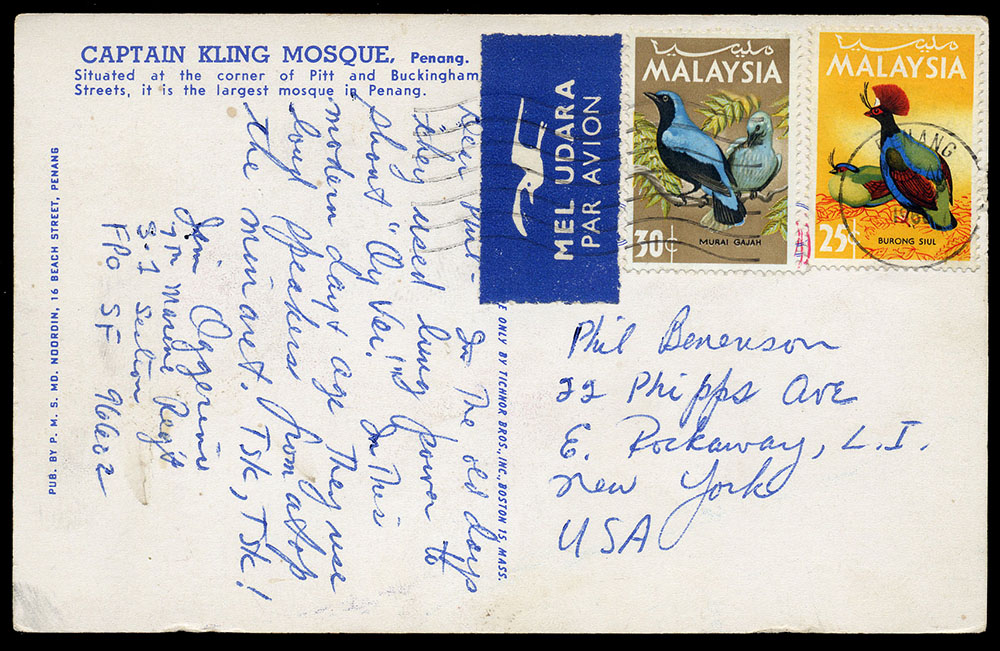 CAPTAIN KLING MOSQUE, Penang.
Situated at the corner of Pitt and Buckingham
Streets, it is the largest mosque in Penang.
In The old days
they used lung power to
shout "Oy Vei." In This
modern day & age They use
loud speakers from atop
the minaret. Tsk, Tsk!
Jim Oggerino
7th Marine Reg't
S-1 Section
FPO SF 96602
PUB. BY P. M. S. MD. NOORDIN, 16 BEACH STREET, PENANG
E ONLY BY TICHNOR BROS., INC., BOSTON 15, MASS.
MEL UDARA
PAR AVION
مليسيا
MALAYSIA
MURAI GAJAH
30¢
مليسيا
MALAYSIA
BURONG SIUL
25¢
Phil Benenson
22 Phipps Ave
E. Rockaway, L.I.
New York
USA